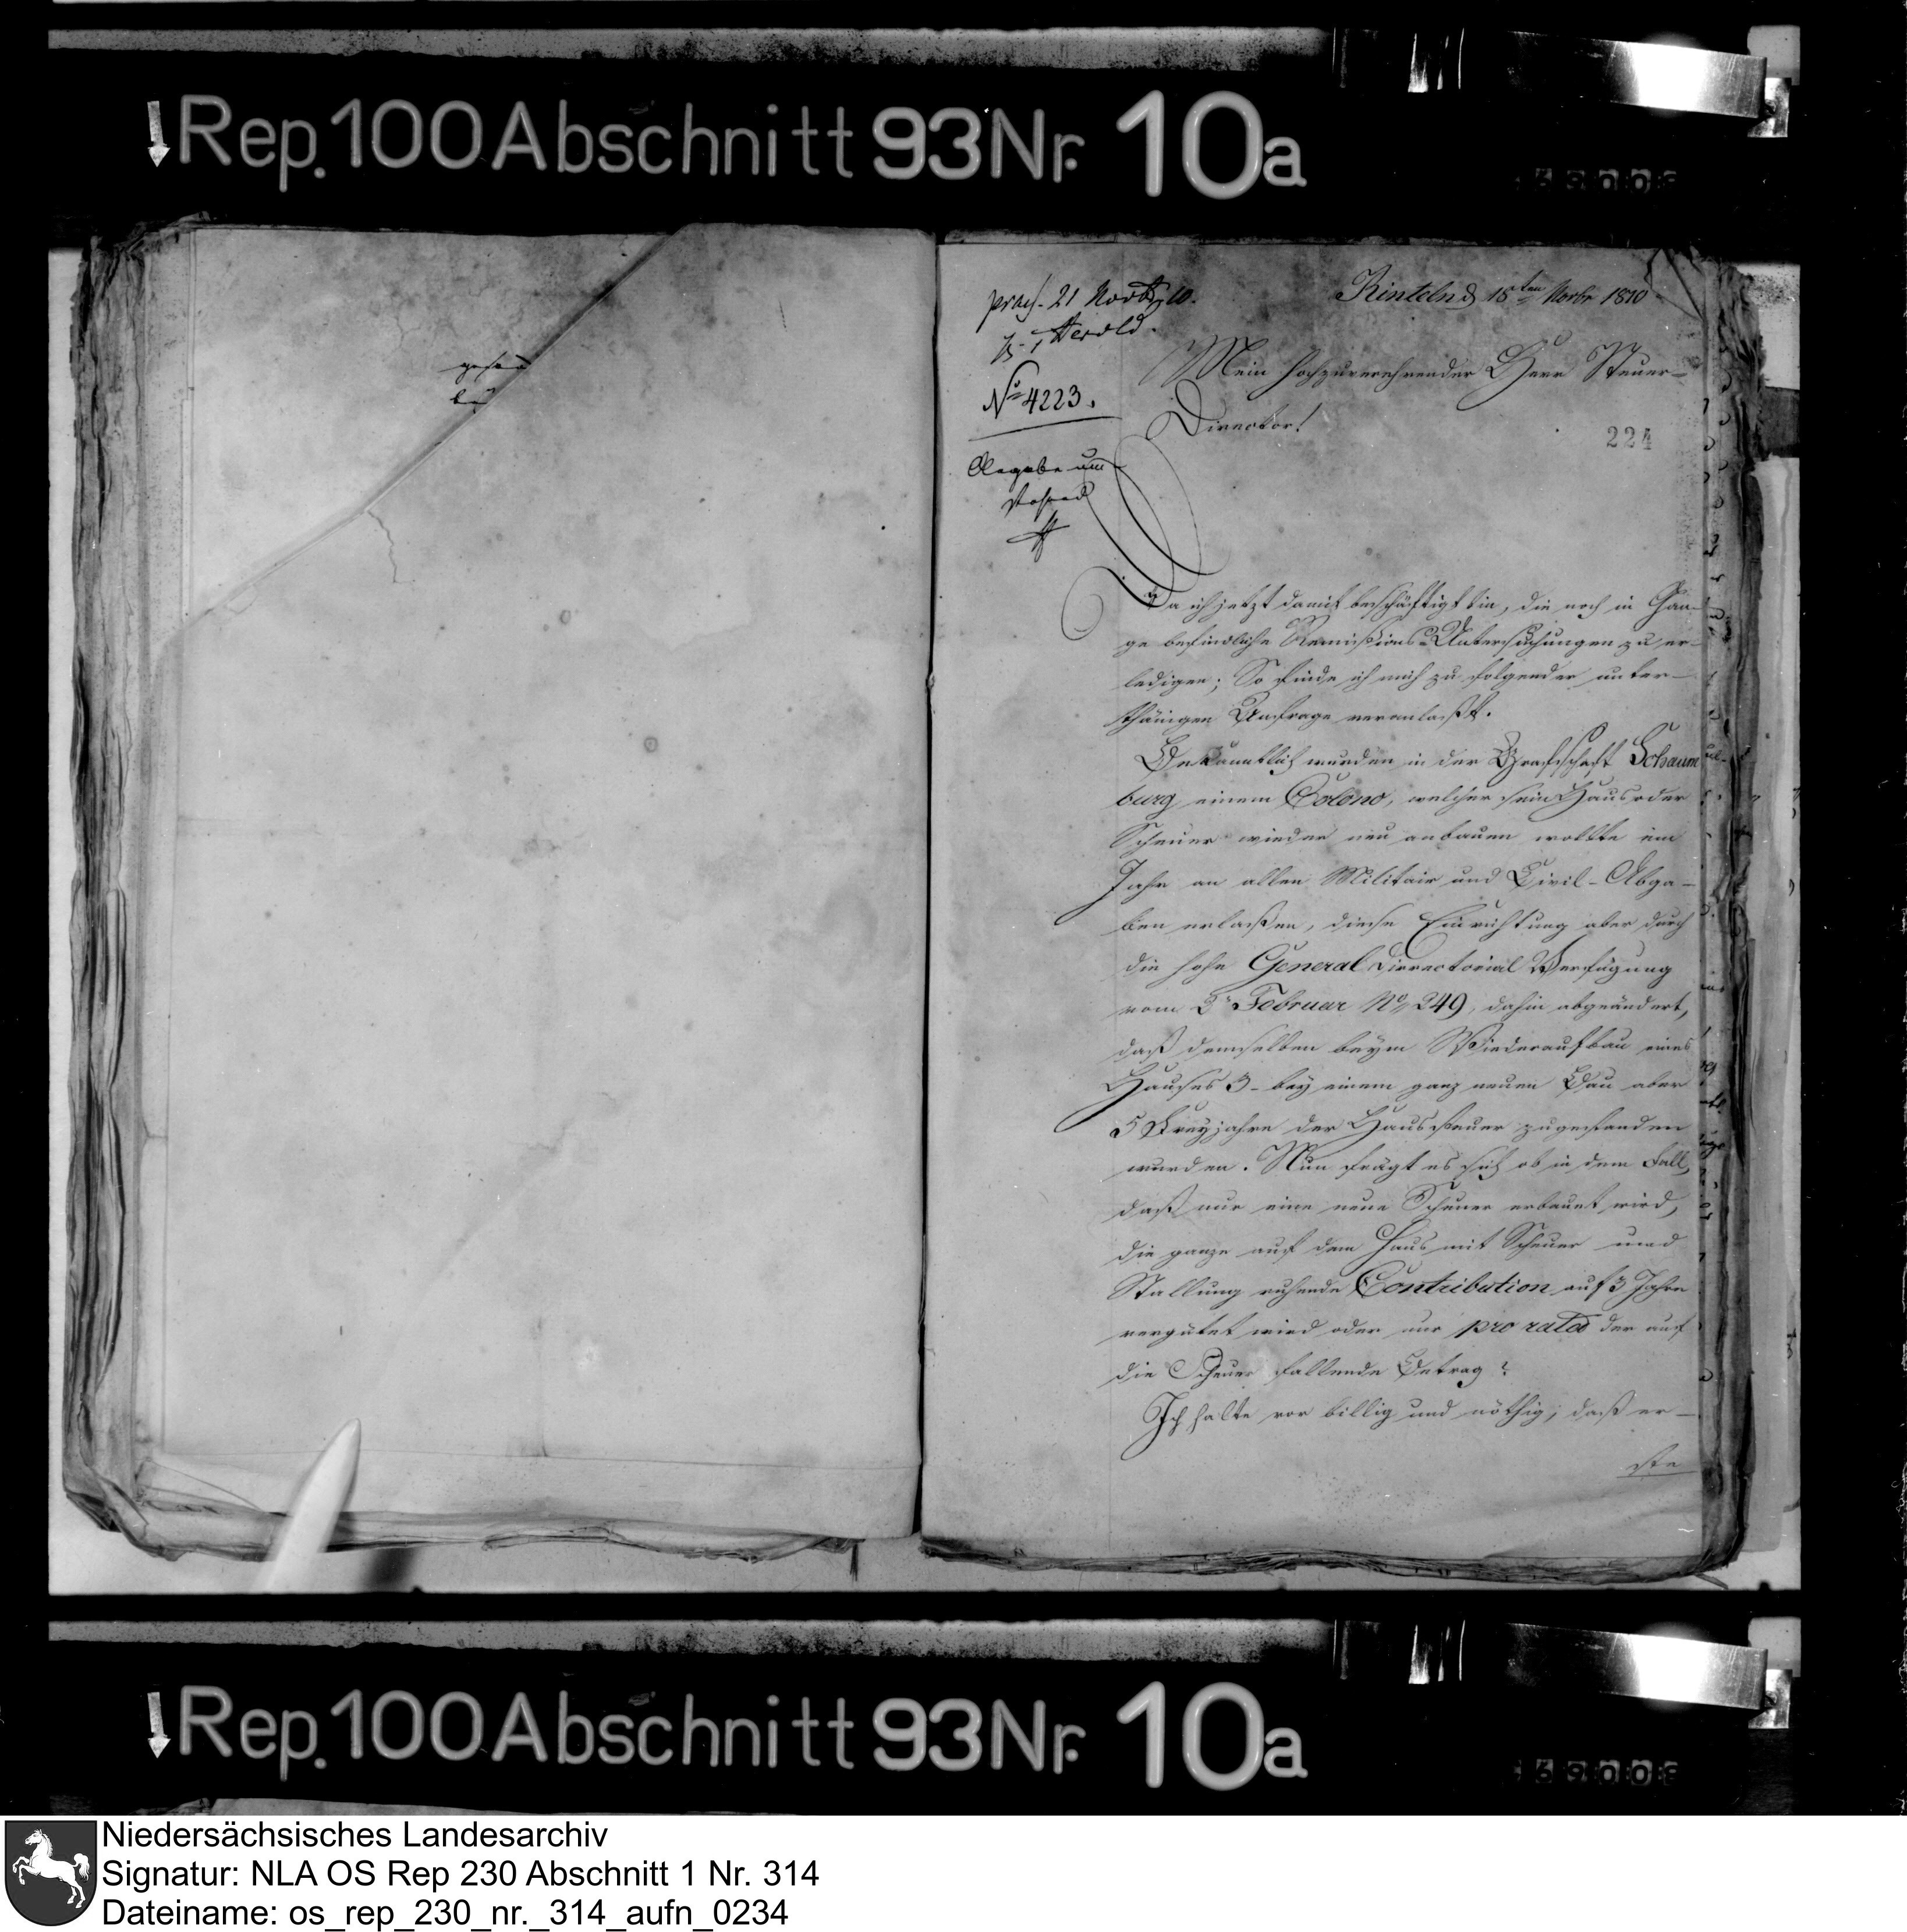 Rep. 100 Abschnitt 93 Nr. 10a
praes. 21 Novbr 10.
Herold.
No 4223.
Rinteln d 18ten Novbr 1810
Mein hochzuverehrender Herr Steuer-
Director!
224
Da ich jetzt damit beschäftigt bin, die noch in Gan-
ge befindliche Remissions Untersuchungen zu er-
ledigen; So finde ich mich zu folgender unter-
thänigen Anfrage veranlaßt.
Bekanntlich wurden in der Grafschaft Schaum
burg einem Colono, welcher sein Haus oder
Scheuer wieder neu anbauen wollte ein
Jahr an allen Militair und Civil-Abga-
ben erlaßen, diese Einrichtung aber durch
die hohe General Directorial Verfügung
vom 3r Februar No 249, dahin abgeändert,
daß demselben beym Wiederaufbau eines
Hauses 3- bey einem ganz neuen Bau aber
5 Freyjahre der Haussteuer zugestanden
wurden. Nun frägt es sich ob in dem Fall,
daß nur eine neue Scheuer erbauet wird,
die ganze auf dem Haus mit Scheuer und
Stallung ruhende Contribution auf 3 Jahre
vergütet wird oder nur pro rata der auf
die Scheuer fallende Betrag?
Ich halte vor billig und nöthig, daß er-
ste
Rep. 100 Abschnitt 93 Nr. 10a
Niedersächsisches Landesarchiv
Signatur: NLA OS Rep 230 Abschnitt 1 Nr. 314
Dateiname: os_rep_230_nr._314_aufn_0234